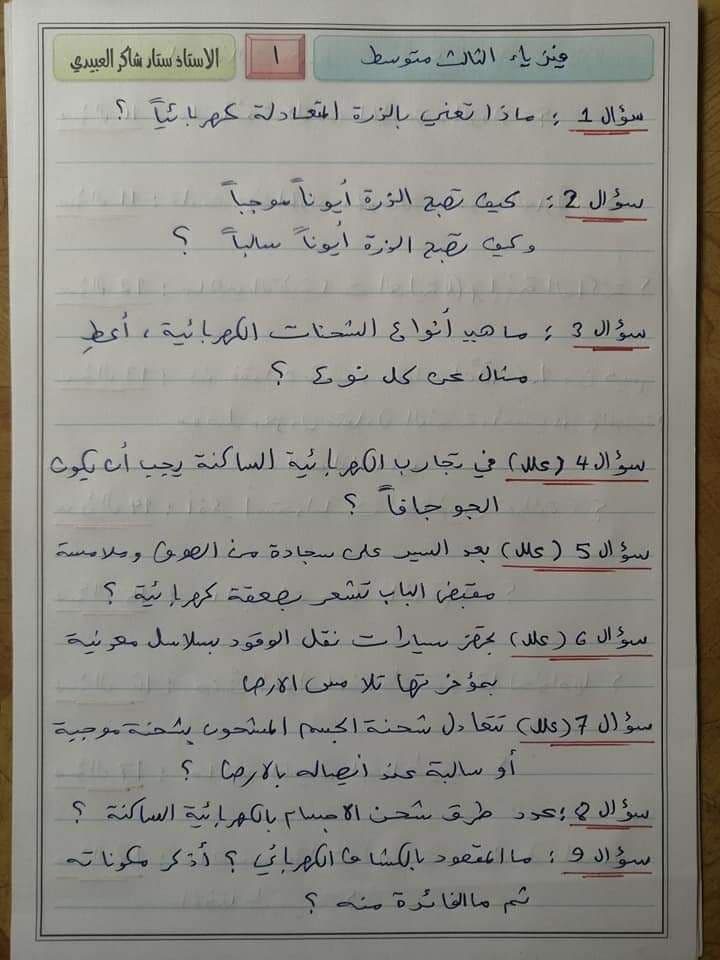 فيزياء الثالث متوسط
١
الاستاذ ستار شاكر العبيدي
سؤال 1 : ماذا تعني بالذرة المتعادلة كهربائياً ؟
سؤال 2 : كيف تصبح الذرة أيوناً موجباً
وكيف تصبح الذرة أيوناً سالباً ؟
سؤال 3 : ما هي أنواع الشحنات الكهربائية ، أعطِ
مثال عن كل نوع ؟
سؤال 4 (علل) في تجارب الكهربائية الساكنة يجب أن يكون
الجو جافاً ؟
سؤال 5 (علل) بعد السير على سجادة من الصوف وملامسة
مقبض الباب تشعر بصعقة كهربائية ؟
سؤال 6 (علل) تجهز سيارات نقل الوقود بسلاسل معدنية
بمؤخرتها تلامس الارض
سؤال 7 (علل) تتعادل شحنة الجسم المشحون بشحنة موجبة
أو سالبة عند اتصاله بالارض ؟
سؤال 8 : عدد طرق شحن الاجسام بالكهربائية الساكنة ؟
سؤال 9 : ما المقصود بالكشاف الكهربائي ؟ أذكر مكوناته
ثم ما الفائدة منه ؟